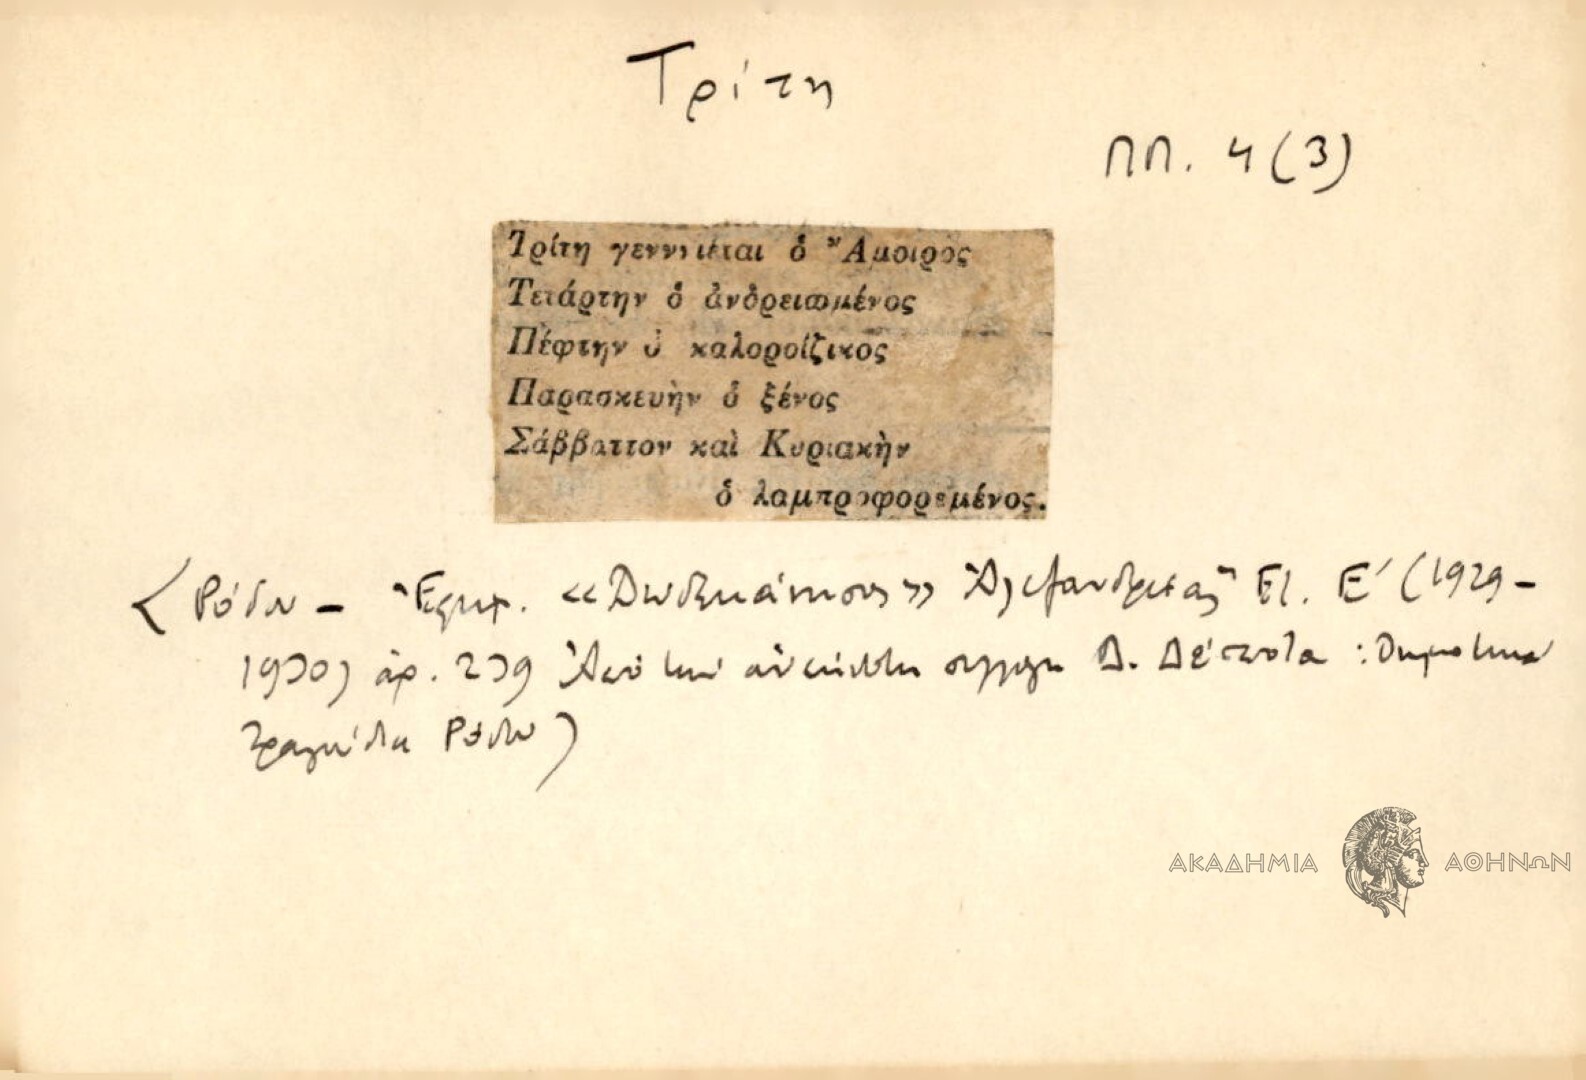 Τρίτη
ΠΠ. 4 (3)
Τρίτη γεννιέται ὁ Ἄμοιρος
Τετάρτην ὁ ἀνδρειωμένος
Πέφτην ὁ καλοροίζικος
Παρασκευὴν ὁ ξένος
Σάββαττον καὶ Κυριακὴν
ὁ λαμπροφορεμένος.
(Ρόδου – Ἐφημ. «Δωδεκάνησος» Ἀλεξανδρείας Ἔτ. Ε΄ (1929–
1930) ἀρ. 239 Ἀπό τὴν ἀνέκδοτη συλλογὴ Δ. Δέσποτα : Δημοτικὰ
Τραγούδια Ρόδου)
ΑΚΑΔΗΜΙΑ ΑΘΗΝΩΝ